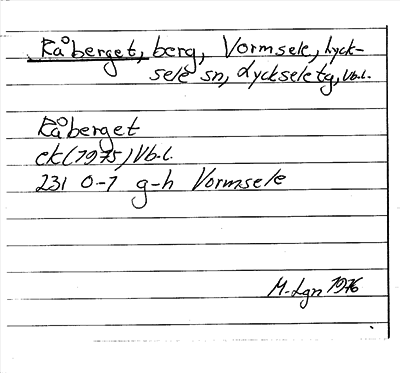 Råberget, berg, Vormsele, Lyck-
sele sn, Lycksele tg, Vb.l.
Råberget
ek (1975) Vb.l.
231 0-1 g-h Vormsele
M-Lgn 1976